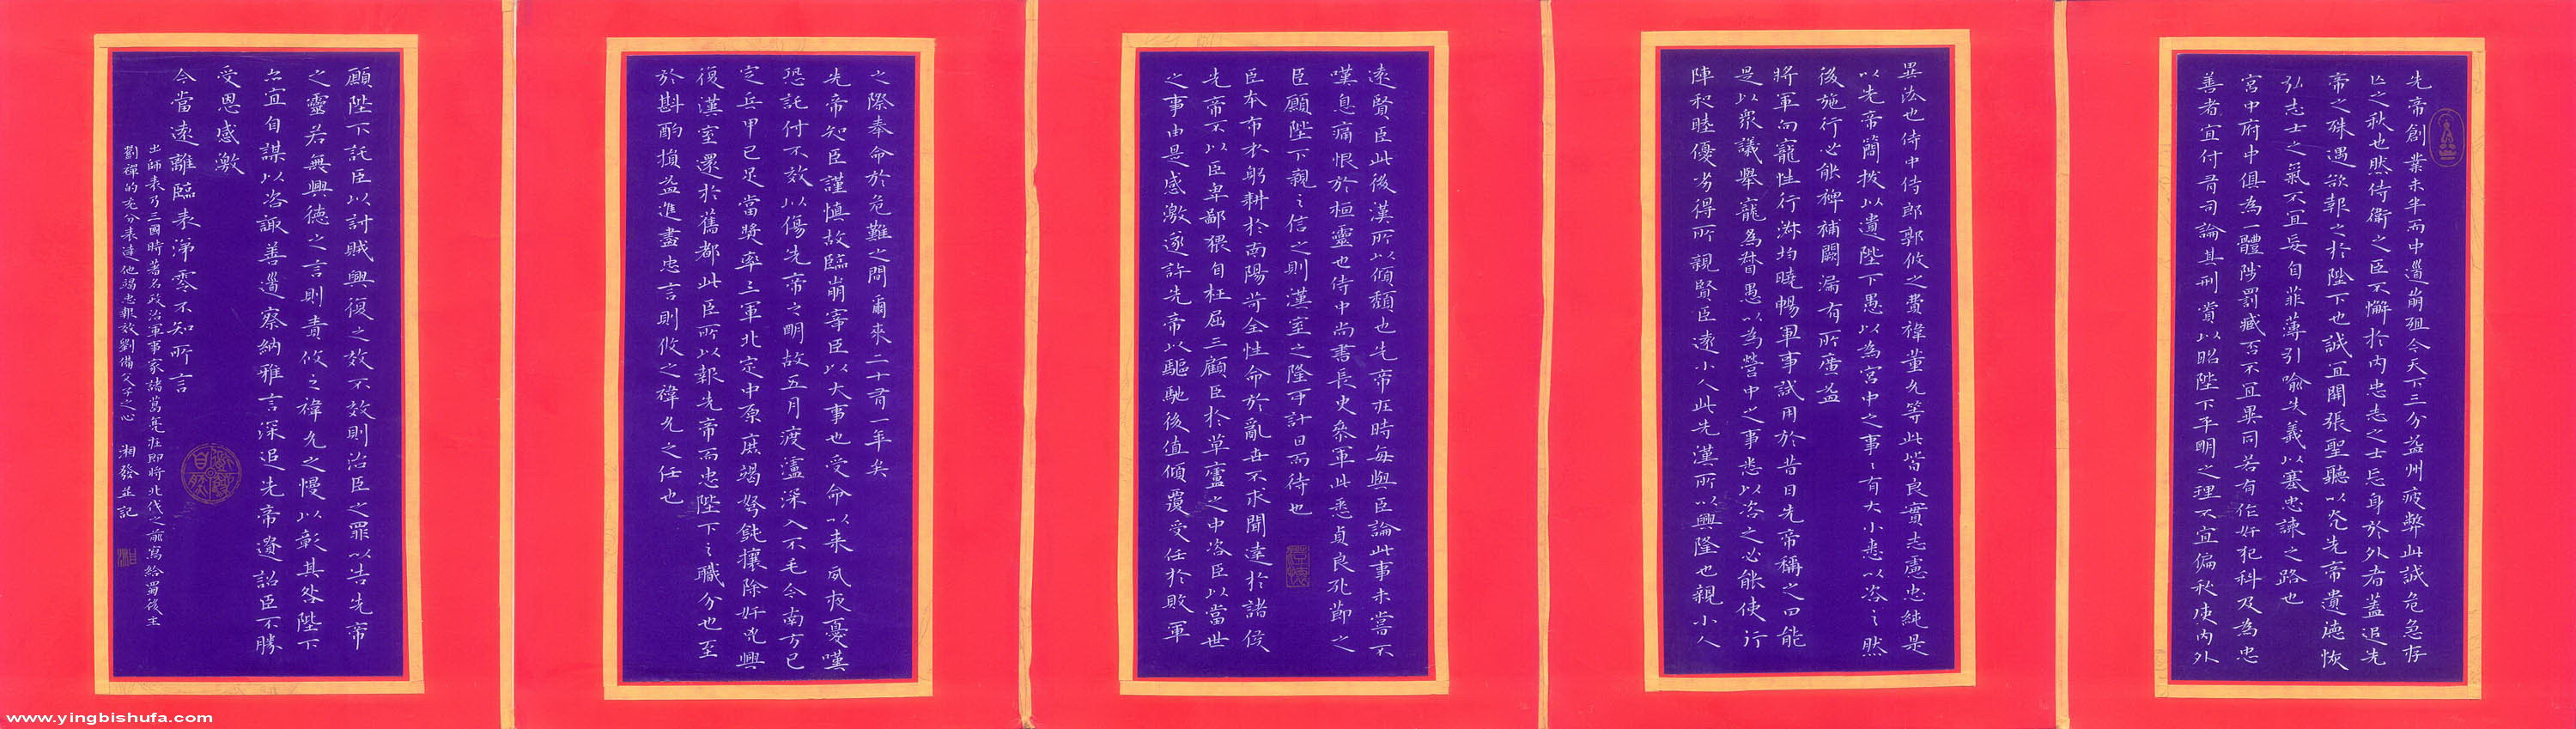 先帝創業未半而中道崩殂今天下三分益州疲弊此誠危急存
亡之秋也然侍衛之臣不懈於内忠志之士忘身於外者蓋追先
帝之殊遇欲報之於陛下也誠宜開張聖聽以光先帝遺德恢
弘志士之氣不宜妄自菲薄引喻失義以塞忠諫之路也
宮中府中俱為一體陟罰臧否不宜異同若有作奸犯科及為忠
善者宜付有司論其刑賞以昭陛下平明之理不宜偏私使内外
異法也侍中侍郎郭攸之費禕董允等此皆良實志慮忠純是
以先帝簡拔以遺陛下愚以為宮中之事〻有大小悉以咨之〻然
後施行必能裨補闕漏有所廣益
將軍向寵性行淑均曉暢軍事試用於昔日先帝稱之曰能
是以眾議舉寵為督愚以為營中之事悉以咨之必能使行
陣和睦優劣得所親賢臣遠小人此先漢所以興隆也親小人
遠賢臣此後漢所以傾頹也先帝在時每與臣論此事未嘗不
嘆息痛恨於桓靈也侍中尚書長史參軍此悉貞良死節之
臣願陛下親之信之則漢室之隆可計日而待也
臣本布衣躬耕於南陽苟全性命於亂世不求聞達於諸侯
先帝不以臣卑鄙猥自枉屈三顧臣於草廬之中咨臣以當世
之事由是感激遂許先帝以驅馳後值傾覆受任於敗軍
之際奉命於危難之間爾來二十有一年矣
先帝知臣謹慎故臨崩寄臣以大事也受命以来夙夜憂嘆
恐託付不效以傷先帝之明故五月渡瀘深入不毛今南方已
定兵甲已足當獎率三軍北定中原庶竭駑鈍攘除奸凶興
復漢室還於舊都此臣所以報先帝而忠陛下之職分也至
於斟酌損益進盡忠言則攸之禕允之任也
願陛下託臣以討賊興復之效不效則治臣之罪以告先帝
之靈若無興德之言則責攸之禕允之慢以彰其咎陛下
亦宜自謀以咨諏善道察納雅言深追先帝遺詔臣不勝
受恩感激
今當遠離臨表涕零不知所言
出師表乃三國時著名政治軍事家諸葛亮在即將北伐之前寫給蜀後主
劉禪的充分表達他竭忠報效劉備父子之心 湘發並記
www.yingbishufa.com